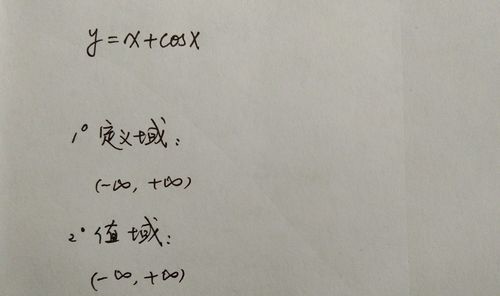 y=x+cosx
1° 定义域：
(-∞, +∞)
2° 值域：
(-∞, +∞)